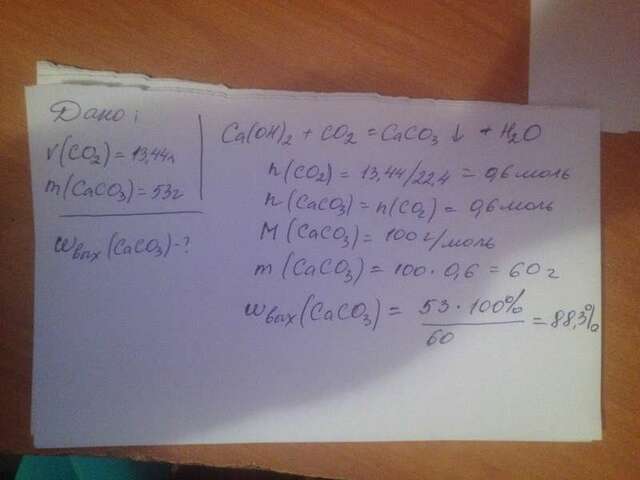 Дано:
v(CO2) = 13,44л
m(CaCO3) = 53г
wвых(CaCO3) - ?
Ca(OH)2 + CO2 = CaCO3 ↓ + H2O
n(CO2) = 13,44/22,4 = 0,6 моль
n(CaCO3) = n(CO2) = 0,6 моль
M(CaCO3) = 100 г/моль
m(CaCO3) = 100 · 0,6 = 60 г
wвых(CaCO3) = 53 · 100% / 60 = 88,3%